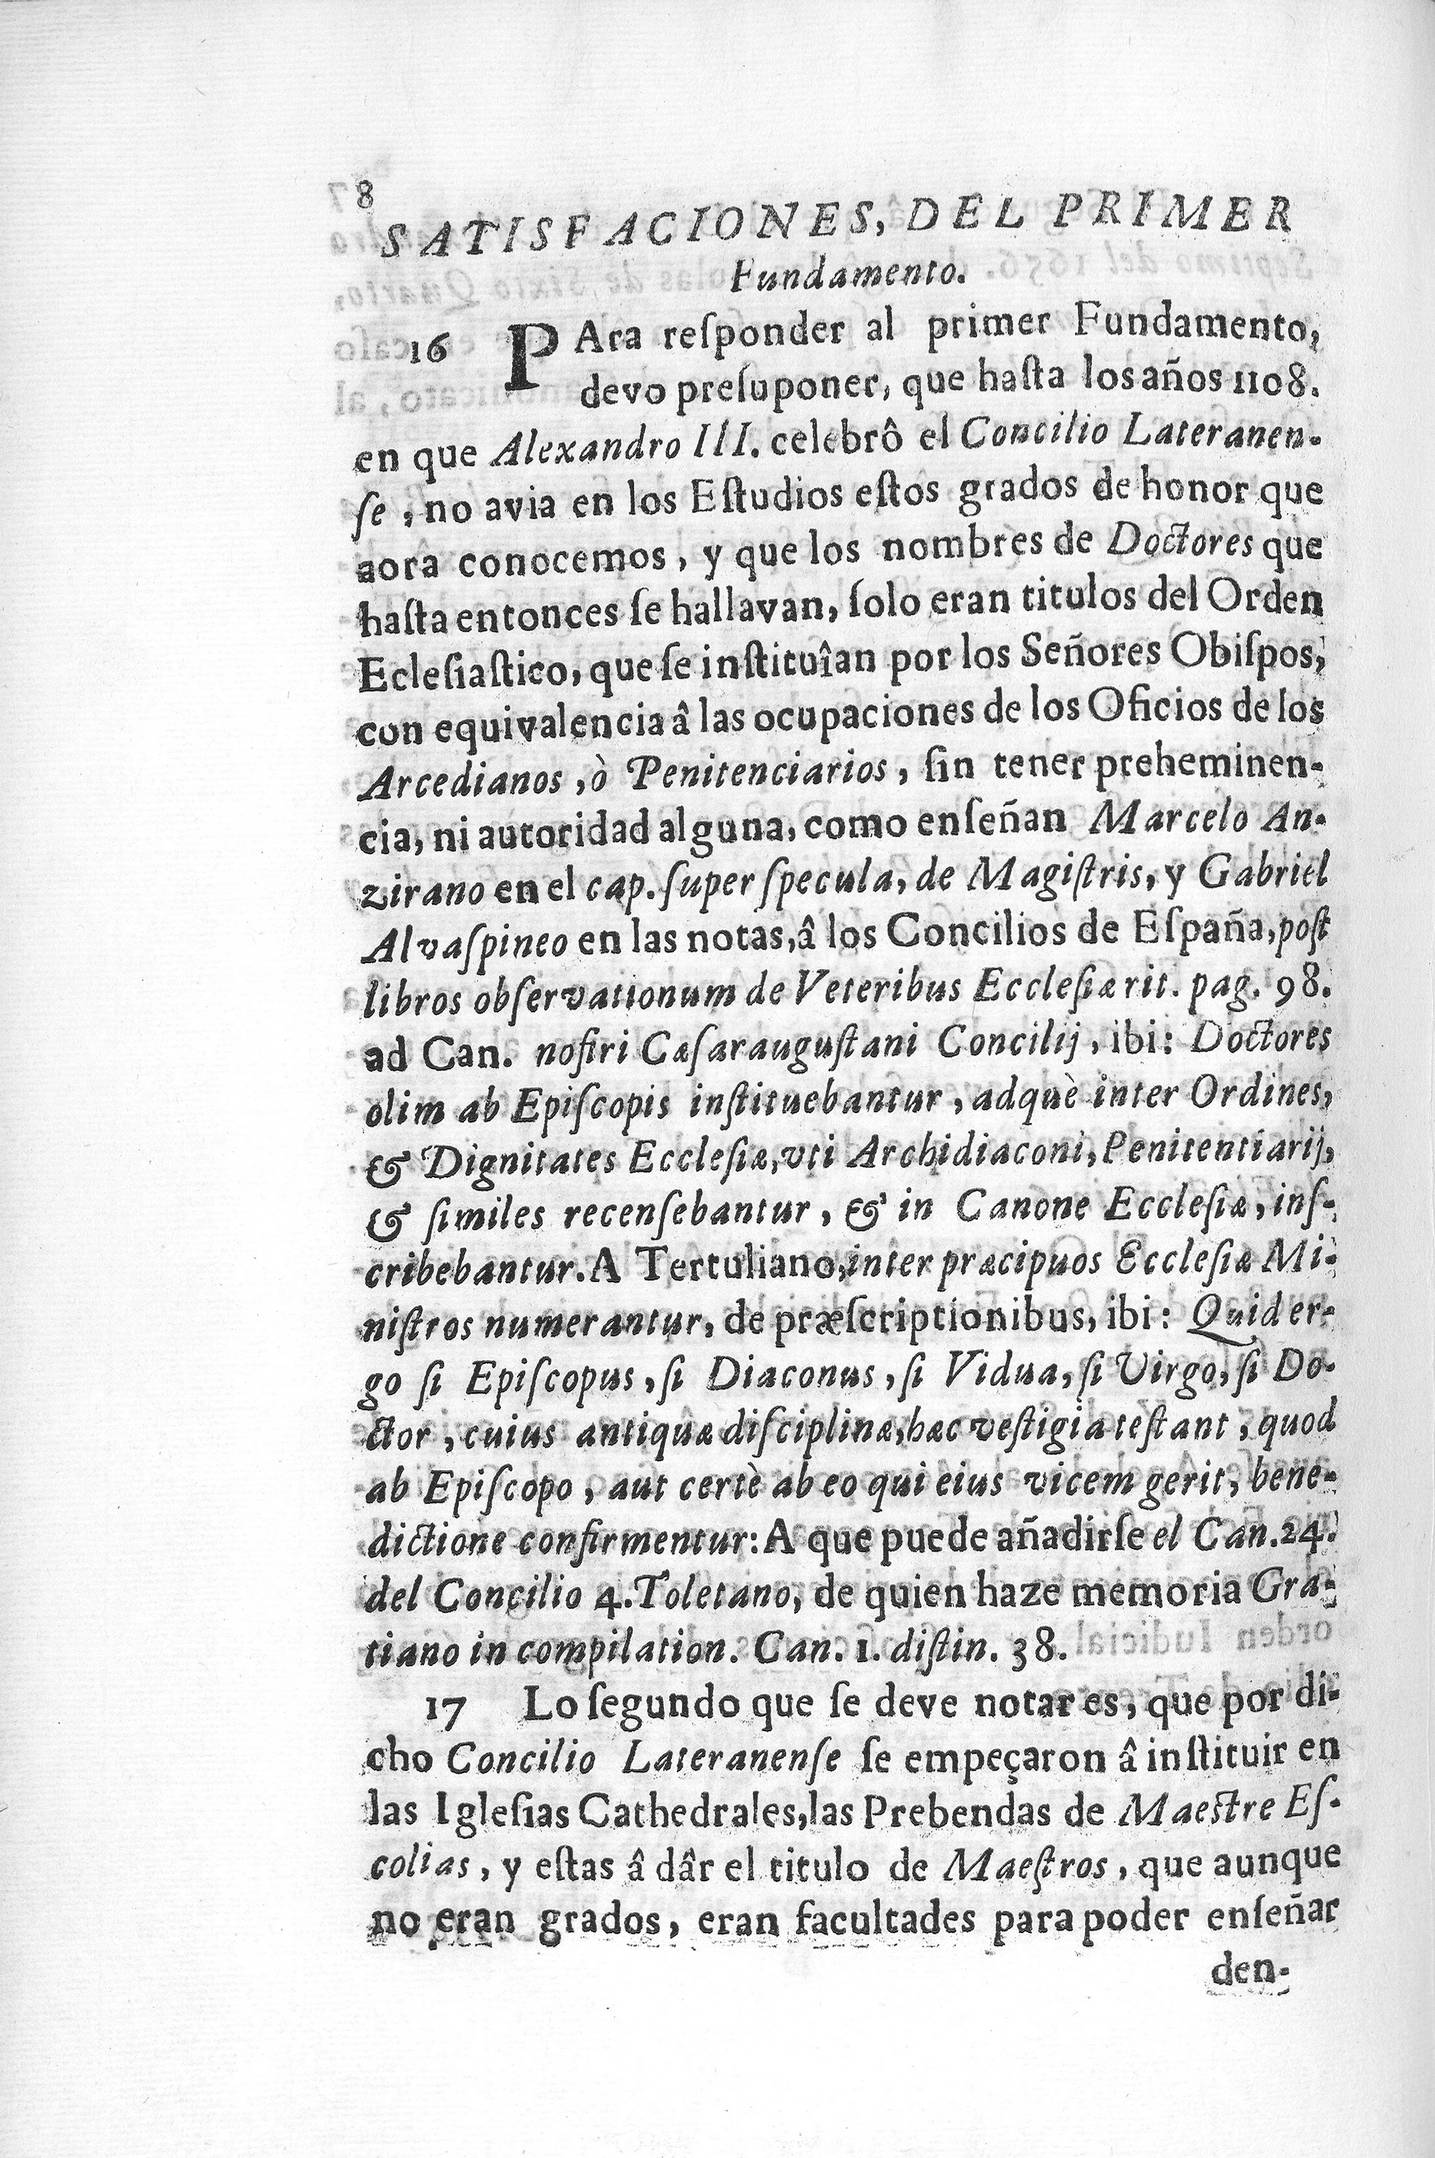 8
SATISFACIONES, DEL PRIMER
Fundamento.
16 PAra reſponder al primer Fundamento,
devo preſuponer, que haſta los años 1108.
en que Alexandro III. celebrô el Concilio Lateranen-
ſe, no avia en los Eſtudios eſtos grados de honor que
aora conocemos, y que los nombres de Doctores que
haſta entonces ſe hallavan, ſolo eran titulos del Orden
Ecleſiaſtico, que ſe inſtituîan por los Señores Obiſpos,
con equivalencia â las ocupaciones de los Oficios de los
Arcedianos, ò Penitenciarios, ſin tener preheminen-
cia, ni autoridad alguna, como enſeñan Marcelo An-
zirano en el cap. ſuper ſpecula, de Magiſtris, y Gabriel
Alvaſpineo en las notas, â los Concilios de Eſpaña, poſt
libros obſervationum de Veteribus Eccleſiæ rit. pag. 98.
ad Can. noſiri Cæſarauguſtani Concilij, ibi: Doctores
olim ab Epiſcopis inſtituebantur, adquè inter Ordines,
& Dignitates Eccleſiæ, vti Archidiaconi, Penitentiarij,
& ſimiles recenſebantur, & in Canone Eccleſiæ, inſ-
cribebantur. A Tertuliano, inter præcipuos Eccleſiæ Mi-
niſtros numerantur, de præſcriptionibus, ibi: Quid er-
go ſi Epiſcopus, ſi Diaconus, ſi Vidua, ſi Virgo, ſi Do-
ctor, cuius antiquæ diſciplinæ, hæc veſtigia teſtant, quod
ab Epiſcopo, aut certè ab eo qui eius vicem gerit, bene-
dictione confirmentur: A que puede añadirſe el Can. 24.
del Concilio 4. Toletano, de quien haze memoria Gra-
tiano in compilation. Can. 1. diſtin. 38.
17 Lo ſegundo que ſe deve notar es, que por di-
cho Concilio Lateranenſe ſe empeçaron â inſtituir en
las Igleſias Cathedrales, las Prebendas de Maeſtre Eſ-
colias, y eſtas â dâr el titulo de Maeſtros, que aunque
no eran grados, eran facultades para poder enſeñar
den-